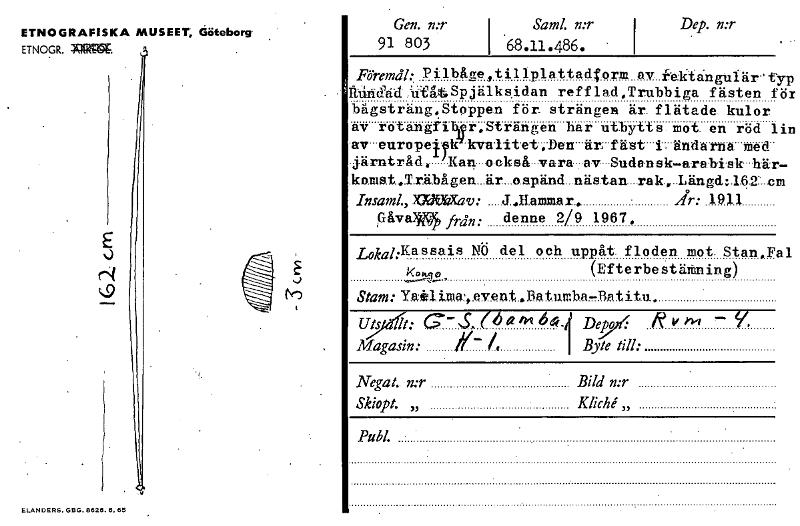 ETNOGRAFISKA MUSEET, Göteborg
ETNOGR.
162 cm
3 cm
ELANDERS, GBG. 8626. 6, 65
Gen. n:r Saml. n:r Dep. n:r
91 803 68.11.486.
Föremål: Pilbåge, tillplattad form av rektangulär typ
Rundad utåt. Spjälksidan refflad. Trubbiga fästen för
bågsträng. Stoppen för strängen är flätade kulor
av rotangfiber. Strängen har utbytts mot en röd lin
av europeisk kvalitet. Den är fäst i ändarna med
järntråd. 1) Kan också vara av Sudansk-arabisk här-
komst. Träbågen är ospänd nästan rak. Längd: 162 cm
Insaml., av: J. Hammar. År: 1911
Gåva från: denne 2/9 1967.
Lokal: Kassais NÖ del och uppåt floden mot Stan. Fal
Kongo. (Efterbestämning)
Stam: Yaelima, event. Batumba-Batitu.
Utställt: G-S. (bamba.) Depon: Rvm - 4.
Magasin: H-1. Byte till:
Negat. n:r Bild n:r
Skiopt. „ Kliché „
Publ.